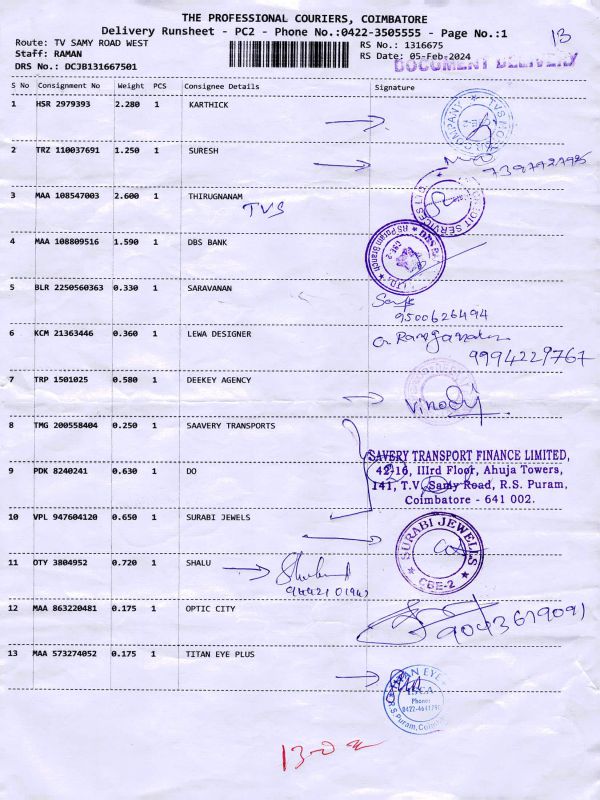 THE PROFESSIONAL COURIERS, COIMBATORE
Delivery Runsheet - PC2 - Phone No.:0422-3505555 - Page No.:1
13
Route: TV SAMY ROAD WEST
RS No.: 1316675
Staff: RAMAN
RS Date: 05-Feb-2024
DOCUMENT DELIVERY
DRS No.: DCJB131667501
S No Consignment No Weight PCS Consignee Details Signature
1 HSR 2979393 2.280 1 KARTHICK
2 TRZ 110037691 1.250 1 SURESH
7397792795
3 MAA 108547003 2.600 1 THIRUGNANAM
TVS
4 MAA 108809516 1.590 1 DBS BANK
RS Puram Branch
CBE-2
5 BLR 2250560363 0.330 1 SARAVANAN
9500626494
6 KCM 21363446 0.360 1 LEWA DESIGNER
9994229767
7 TRP 1501025 0.580 1 DEEKEY AGENCY
Vinod
8 TMG 200558404 0.250 1 SAAVERY TRANSPORTS
SAVERY TRANSPORT FINANCE LIMITED,
42-16, IIIrd Floor, Ahuja Towers,
141, T.V. Samy Road, R.S. Puram,
Coimbatore - 641 002.
9 PDK 8240241 0.630 1 DO
10 VPL 947604120 0.650 1 SURABI JEWELS
SURABI JEWELLS
CBE-2
11 OTY 3804952 0.720 1 SHALU
12 MAA 863220481 0.175 1 OPTIC CITY
9043679091
13 MAA 573274052 0.175 1 TITAN EYE PLUS
TITAN EYE
Phone:
R.S.Puram,